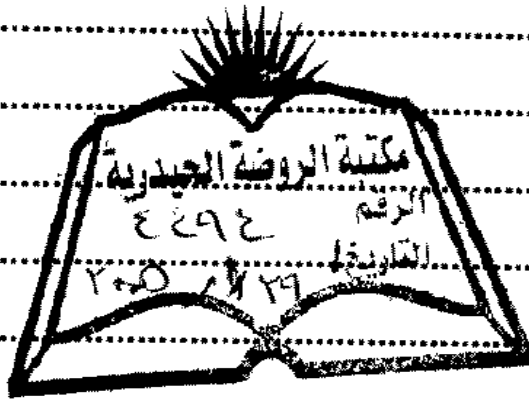 مكتبة الروضة الحيدرية
الرقم ٤٤٩٤
التاريخ ٢٠٠٥